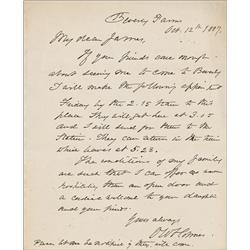 Beverly Farms
Oct. 12th 1887.
My dear James,
If your friends care enough
about seeing me to come to Beverly
I will make the following appoint
Friday by the 2.15 train to this
place They will get here at 3.15
and I will send for them to the
Station. They can return in the train
which leaves at 5.23
The conditions of my family
are such that I can offer no more
hospitality than an open door and
a cordial welcome to your daughter
and your friends.
Yours always
O W Holmes
Please let me be notified if they will come.